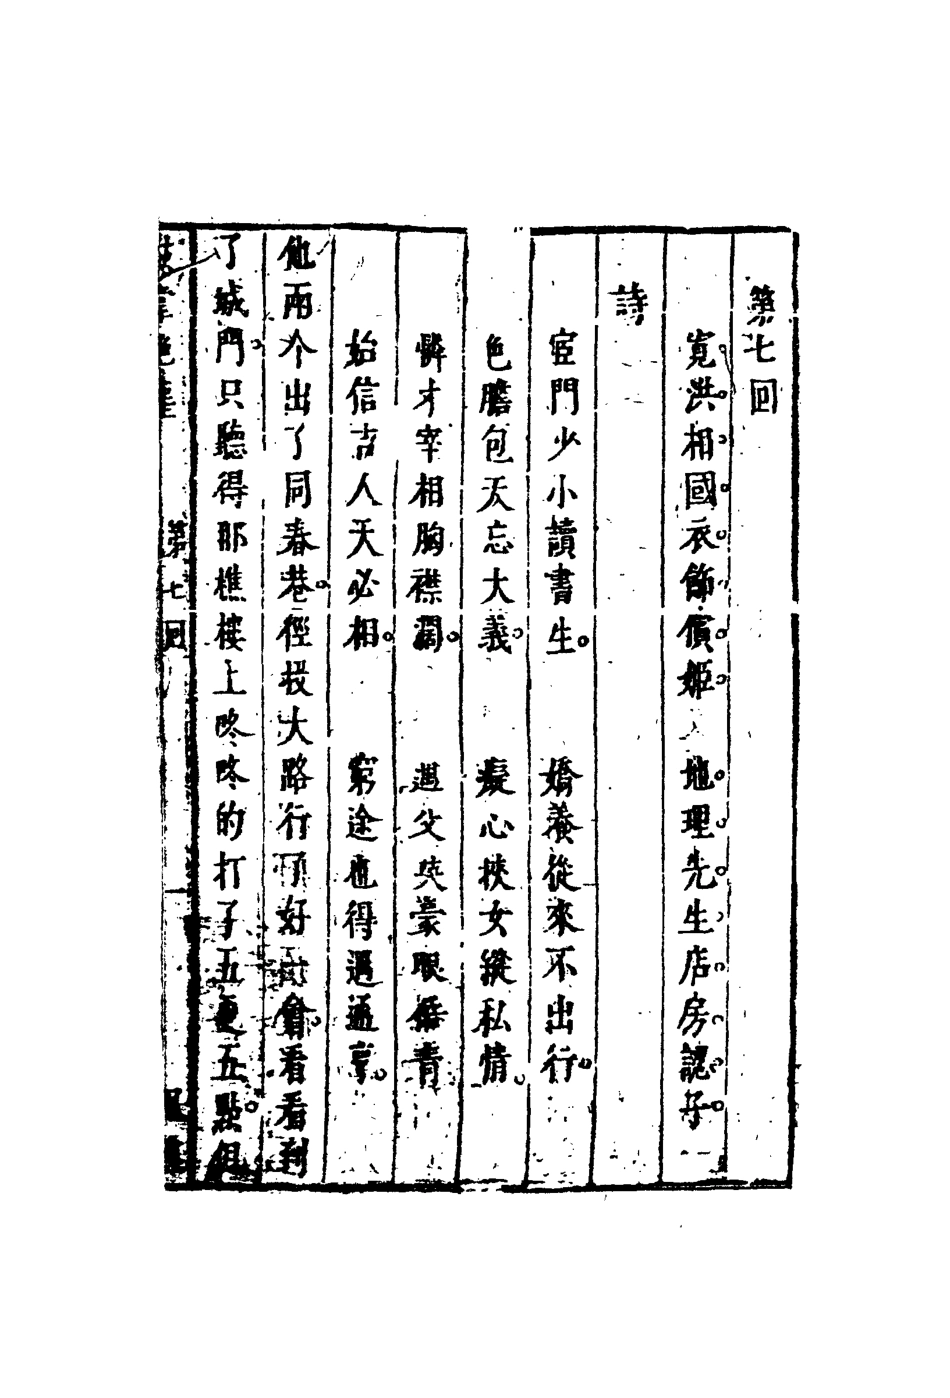 第七回
寬洪相國衣飾償姬　地理先生店房認子
詩
宦門少小讀書生。　嬌養從來不出行。
色膽包天忘大義。　癡心挾女縱私情。
憐才宰相胸襟濶。　遇父英豪眼倍青
始信吉人天必相。　窮途也得遇通亨。
他兩个出了同春巷。徑投大路行了好一會。看看到
了城門。只聽得那樵樓上咚咚的打了五更五點。但
第七回